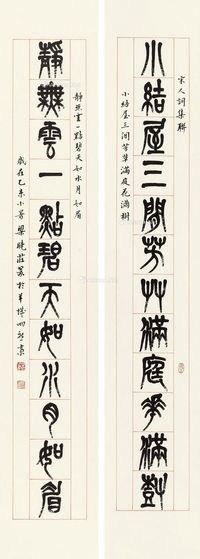 宋人詞集聯
小結屋三間芳艸滿庭華滿封
小結屋三間芳草滿庭花滿樹
靜無雲一點碧天如水月如眉
靜無雲一點碧天如水月如眉
歲在乙未小暑梁曉莊篆於羊城